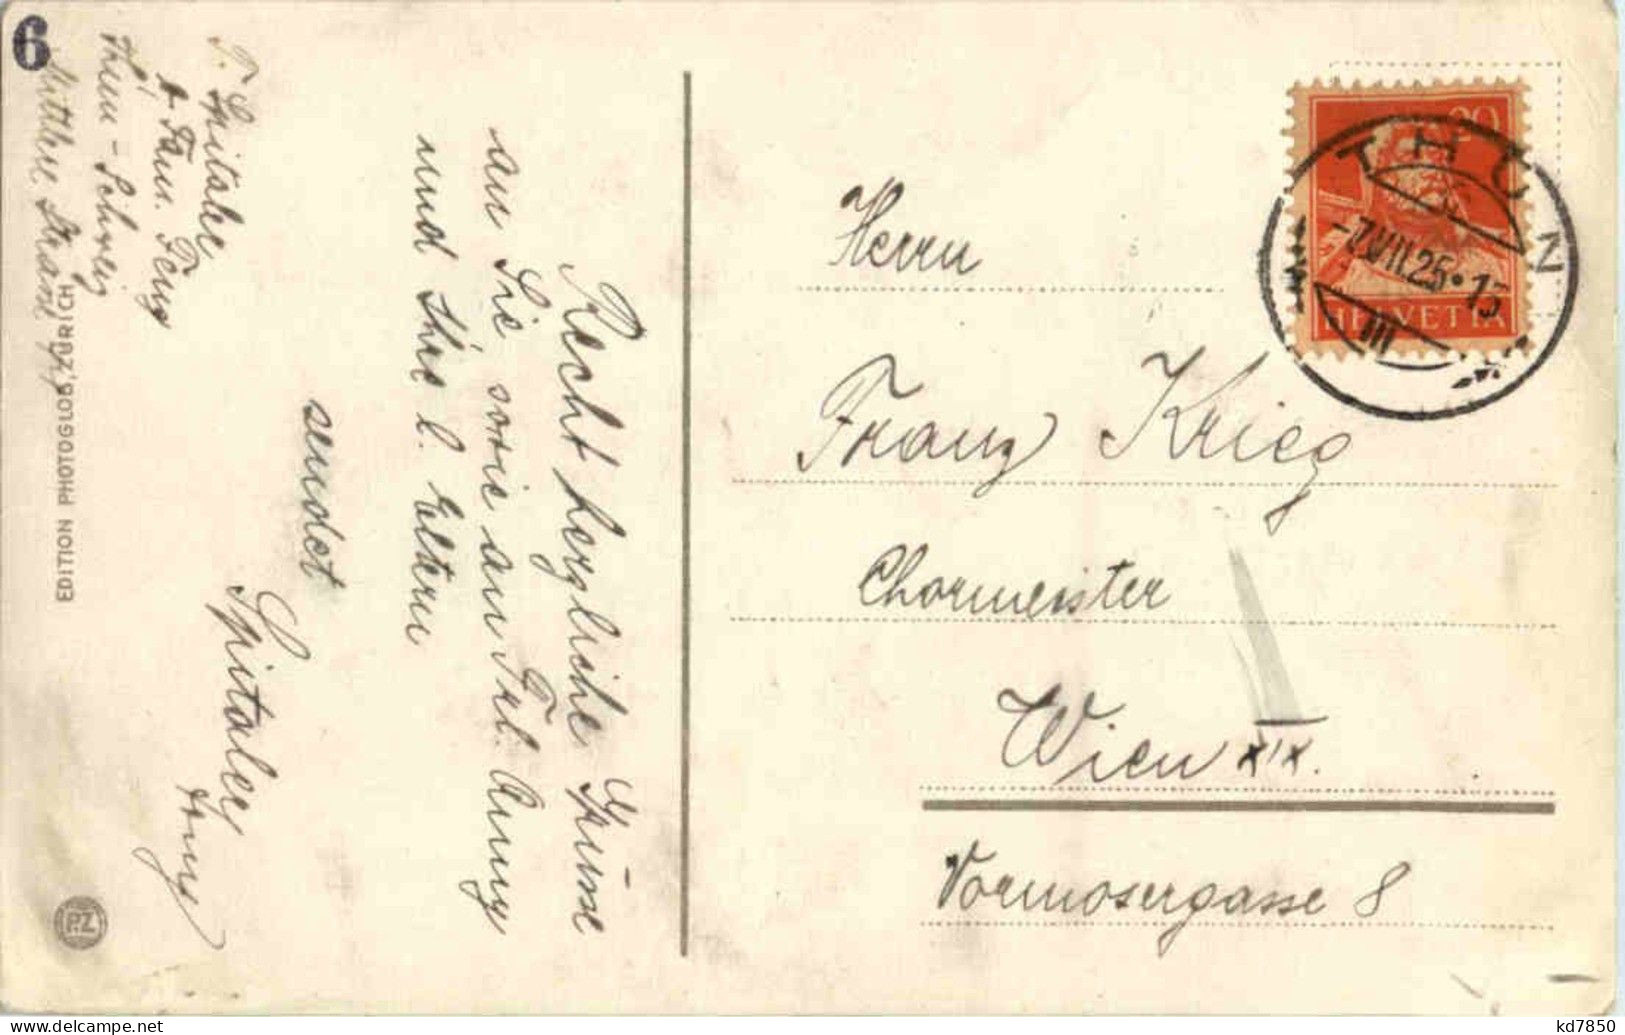 6
T. Spitaler
b. Fam. Feuz
Thun - Schweiz
Mittlere Strasse
EDITION PHOTOGLOB, ZÜRICH
PZ
Recht herzliche Grüsse
an Sie sowie an Frl. Anny
und Ihre l. Eltern
sendet
Spitaler
Tony
20
HELVETIA
THUN
-7.VII.25.
III
Herrn
Franz Krieg
Chormeister
Wien XIX.
Vormosergasse 8
kd7850